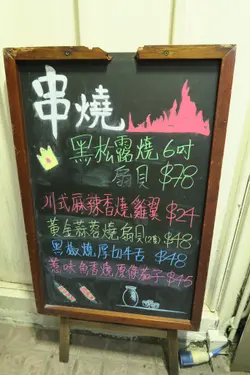 串燒
黑松露燒6吋
扇貝 $78
川式麻辣香燒雞翼 $24
黃金蒜蓉燒扇貝(2隻) $48
黑椒燒厚切牛舌 $48
惹味魚香燒原條茄子 $45